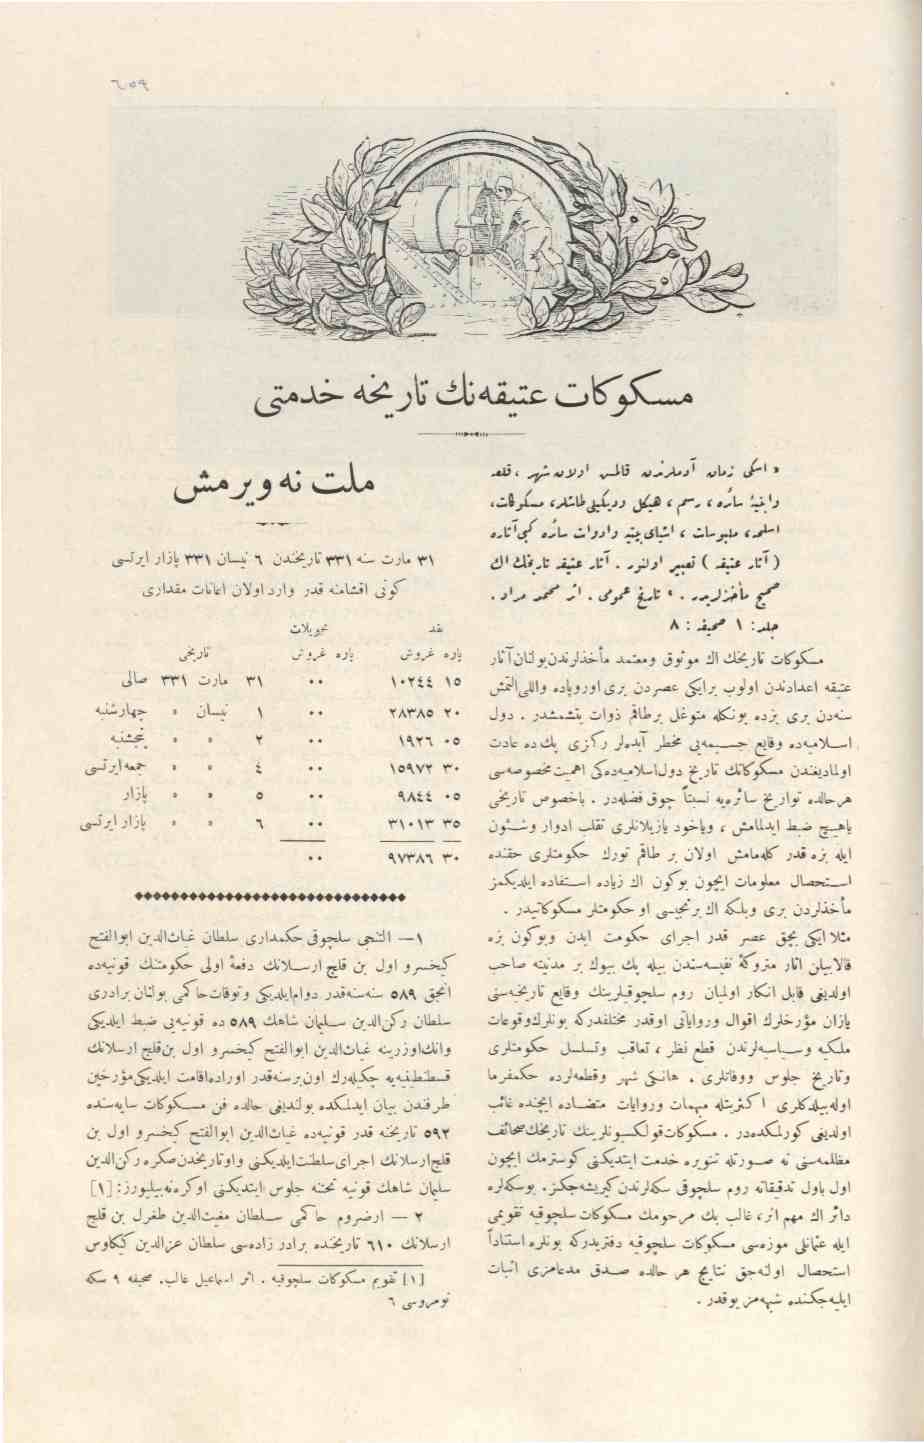 ٦٥٩
مسكوكات عتيقه‌نك تاريخه خدمتى
« اسكى زمان آدملرندن قالمش اولان شهر ، قلعه
وابنيۀ سائره ، رسم ، هيكل وديكيلى طاشلر ، مسكوكات،
اسلحه ، ملبوسات ، اشياى بيتيه وادوات سائره كبى آثاره
( آثار عتيقه ) تعبير اولنور . آثار عتيقه تاريخك اك
صحيح مأخذلريدر . » تاريخ عمومى . اثر محمد مراد .
جلد: ١ صحيفه : ٨
مسكوكات تاريخك اك موثوق ومعتمد مأخذلرندن‌بولنان‌آثار
عتيقه اعدادندن اولوب برايكى عصردن برى اوروپاده واللى‌التمش
سنه‌دن برى بزده بونكله متوغل برطاقم ذوات يتشمشدر . دول
اسلاميه‌ده وقايع جسيمه‌يى مخطر آبده‌لر ركزى پك‌ده عادت
اولماديغندن مسكوكاتك تاريخ دول‌اسلاميه‌ده‌كى اهميت‌مخصوصه‌سى
هرحالده تواريخ سائره‌يه نسبتاً چوق فضله‌در . باخصوص تاريخى
ياهيچ ضبط ايدلمامش ، وياخود يازيلانلرى تقلب ادوار وشئون
ايله بزه قدر كله‌مامش اولان بر طاقم تورك حكومتلرى حقنده
استحصال معلومات ايچون بوكون اك زياده استفاده ايلديكمز
مأخذلردن برى وبلكه اك برنجيسى او حكومتلر مسكوكاتيدر .
مثلا ايكى بچق عصر قدر اجراى حكومت ايدن وبوكون بزه
قالابيلن آثار متروكۀ نفيسه‌سندن بيله پك بيوك بر مدنيته صاحب
اولديغى قابل انكار اولميان روم سلچوقيلرينك وقايع تاريخيه‌سنى
يازان مؤرخلرك اقوال ورواياتى اوقدر مختلفدركه بونلرك‌وقوعات
ملكيه وسياسيه‌لرندن قطع نظر ، تعاقب وتسلسل حكومتلرى
وتاريخ جلوس ووفاتلرى . هانكى شهر وقطعه‌لرده حكمفرما
اوله‌بيلدكلرى اكثريتله مبهمات وروايات متضاده ايچنده غائب
اولديغى كورلمكده‌در . مسكوكات قولكسيونلرينك تاريخك‌صحائف
مظلمه‌سنى نه صورتله تنويره خدمت ايتديكنى كوسترمك ايچون
اول باول تدقيقاته روم سلچوقى سكه‌لرندن كيريشه‌جكز. بوسكه‌لره
دائر اك مهم اثر، غالب بك مرحومك مسكوكات سلچوقيه تقويمى
ايله عثمانلى موزه‌سى مسكوكات سلچوقيه دفتريدركه بونلره استناداً
استحصال اولنه‌جق نتايج هر حالده صدق مدعامزى اثبات
ايليه‌جكنده شبهه‌مز يوقدر .
ملت نه ويرمش
٣١ مارت سنه ٣٣١ تاريخندن ٦ نيسان ٣٣١ پازار ايرتسى
كونى اقشامنه قدر وارد اولان اعانات مقدارى
نقد تحويلات
پاره غروش پاره غروش تاريخى
١٥ ١٠٢٤٤ ٠٠ ٣١ مارت ٣٣١ صالى
٢٠ ٢٨٣٨٥ ٠٠ ١ نيسان » چهارشنبه
٠٥ ١٩٢٦ ٠٠ ٢ » » پنجشنبه
٣٠ ١٥٩٧٢ ٠٠ ٤ » » جمعه‌ايرتسى
٠٥ ٩٨٤٤ ٠٠ ٥ » » پازار
٣٥ ٣١٠١٣ ٠٠ ٦ » » پازار ايرتسى
٣٠ ٩٧٣٨٦ ٠٠
١ — التنجى سلچوقى حكمدارى سلطان غياث‌الدين ابوالفتح
كيخسرو اول بن قليچ ارسلانك دفعۀ اولى حكومتنك قونيه‌ده
انجق ٥٨٩ سنه‌سنه‌قدر دوام‌ايلديكى وتوقات‌حاكمى بولنان برادرى
سلطان ركن‌الدين سليمان شاهك ٥٨٩ ده قونيه‌يى ضبط ايلديكى
وانك‌اوزرينه غياث‌الدين ابوالفتح كيخسرو اول بن‌قليچ ارسلانك
قسطنطينيه‌يه چكيله‌رك اون‌برسنه‌قدر اوراده‌اقامت ايلديكى‌مؤرخين
طرفندن بيان ايدلمكده بولنديغى حالده فن مسكوكات سايه‌سنده
٥٩٢ تاريخنه قدر قونيه‌ده غياث‌الدين ابوالفتح كيخسرو اول بن
قليچ‌ارسلانك اجراى‌سلطنت‌ايلديكنى واوتاريخدن‌صكره ركن‌الدين
سليمان شاهك قونيه تختنه جلوس ايتديكنى اوكره‌نه‌بيليورز: [١]
٢ — ارضروم حاكمى سلطان مغيث‌الدين طغرل بن قليچ
ارسلانك ٦١٠ تاريخنده برادر زاده‌سى سلطان عزالدين كيكاوس
[١] تقويم مسكوكات سلچوقيه . اثر اسماعيل غالب. صحيفه ٩ سكه
نومروسى ٦